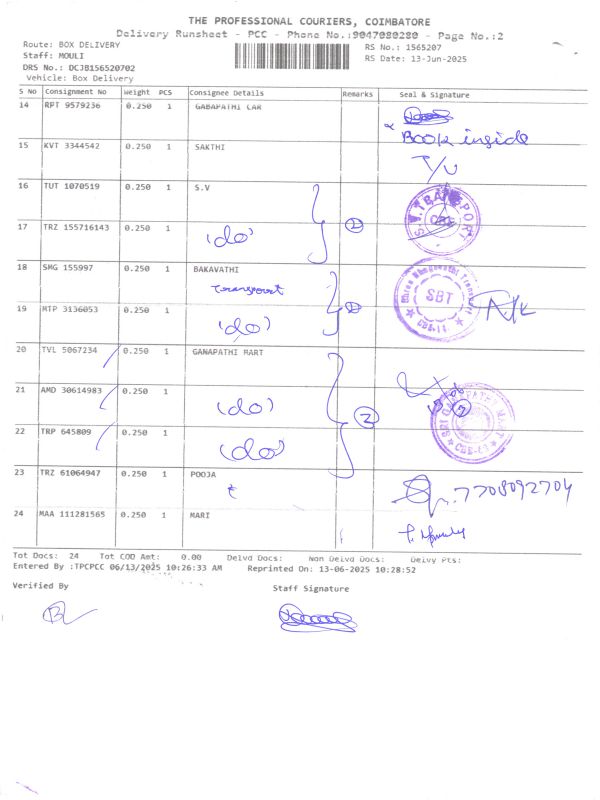 THE PROFESSIONAL COURIERS, COIMBATORE
Delivery Runsheet - PCC - Phone No.:9047080280 - Page No.:2
Route: BOX DELIVERY RS No.: 1565207
Staff: MOULI RS Date: 13-Jun-2025
DRS No.: DCJB156520702
Vehicle: Box Delivery
S No Consignment No Weight PCS Consignee Details Remarks Seal & Signature
14 RPT 9579236 0.250 1 GABAPATHI CAR
Book inside
15 KVT 3344542 0.250 1 SAKTHI
16 TUT 1070519 0.250 1 S.V
S.V.TRANSPORT CBE
17 TRZ 155716143 0.250 1
(do) 2
18 SMG 155997 0.250 1 BAKAVATHI
Transport
Shree Bhagavathi Transport SBT CBE-14
19 MTP 3136053 0.250 1
(do) 2
20 TVL 5067234 0.250 1 GANAPATHI MART
21 AMD 30614983 0.250 1
(do) 3
22 TRP 645809 0.250 1
(do)
23 TRZ 61064947 0.250 1 POOJA
7708092704
24 MAA 111281565 0.250 1 MARI
Tot Docs: 24 Tot COD Amt: 0.00 Delvd Docs: Non Delvd Docs: Delvy Pts:
Entered By :TPCPCC 06/13/2025 10:26:33 AM Reprinted On: 13-06-2025 10:28:52
Verified By Staff Signature